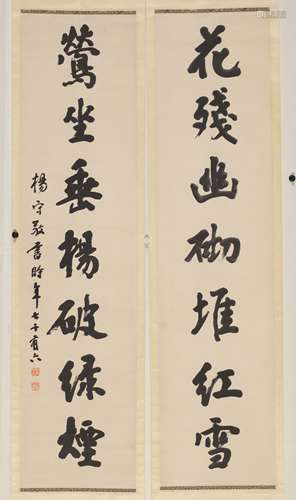 花殘幽砌堆紅雪
鶯坐垂楊破緑煙
楊守敬書時年七十有六